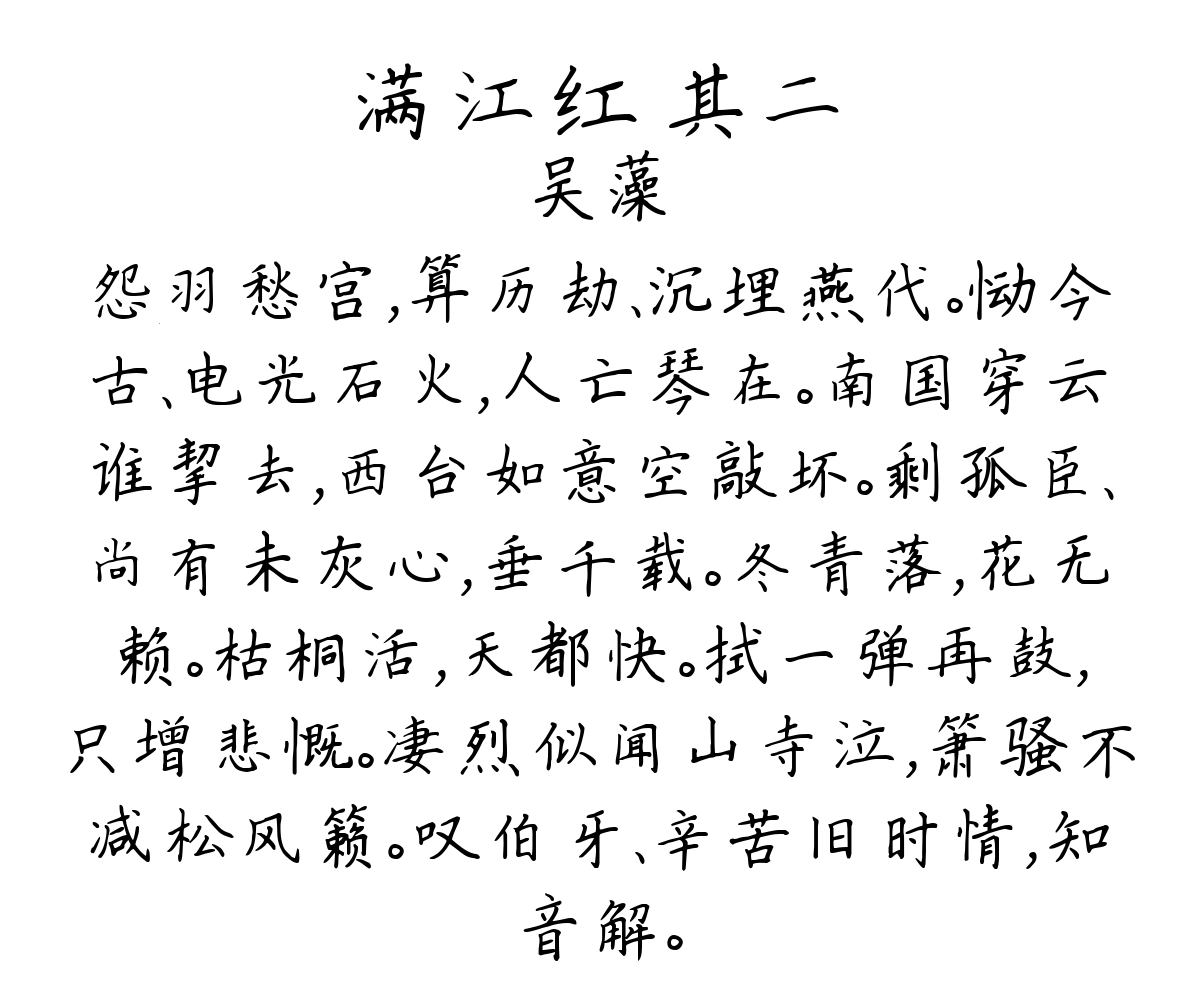 满江红 其二
吴藻
怨羽愁宫,算历劫、沉埋燕代。恸今
古、电光石火,人亡琴在。南国穿云
谁挈去,西台如意空敲坏。剩孤臣、
尚有未灰心,垂千载。冬青落,花无
赖。枯桐活,天都快。拭一弹再鼓,
只增悲慨。凄烈似闻山寺泣,箫骚不
减松风籁。叹伯牙、辛苦旧时情,知
音解。